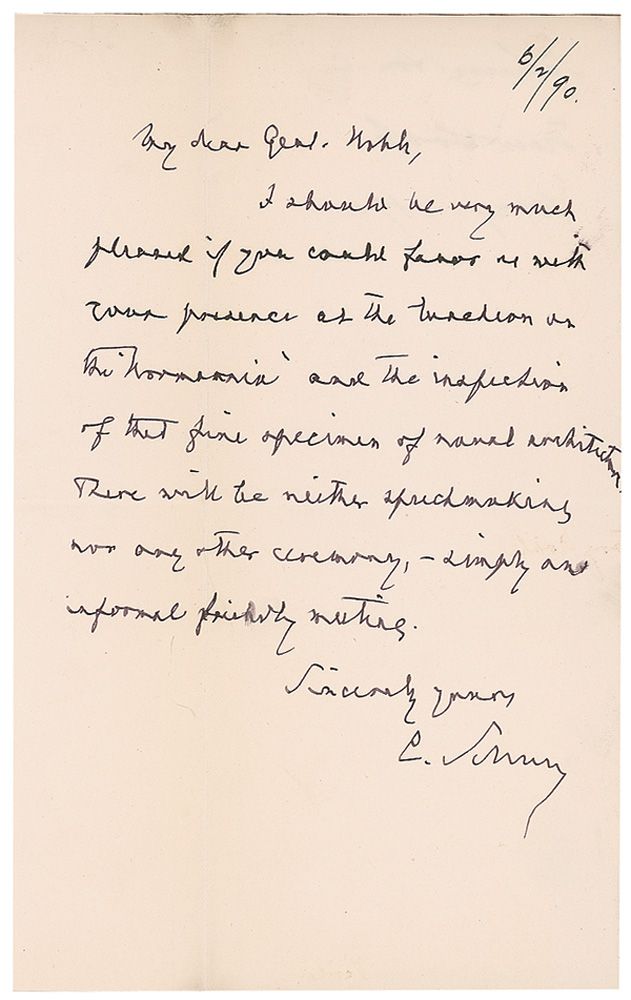 6/2/90.
My dear Genl. Webb,
I should be very much
pleased if you could favor us with
your presence at the luncheon on
the 'Normannia' and the inspection
of that fine specimen of naval architecture.
There will be neither speechmaking
nor any other ceremony, – simply an
informal friendly meeting.
Sincerely yours
C. Schurz